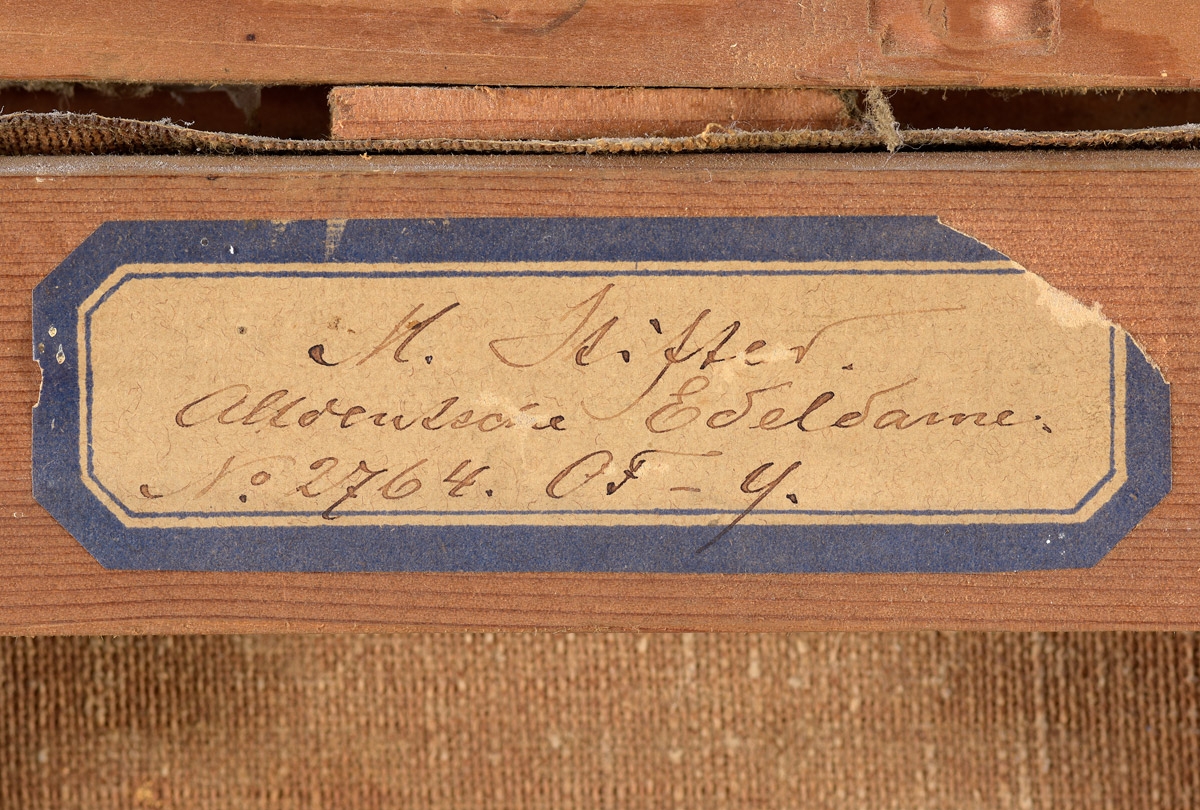 M. Stifter.
Altdeutsche Edeldame.
No. 2764. OF – y.